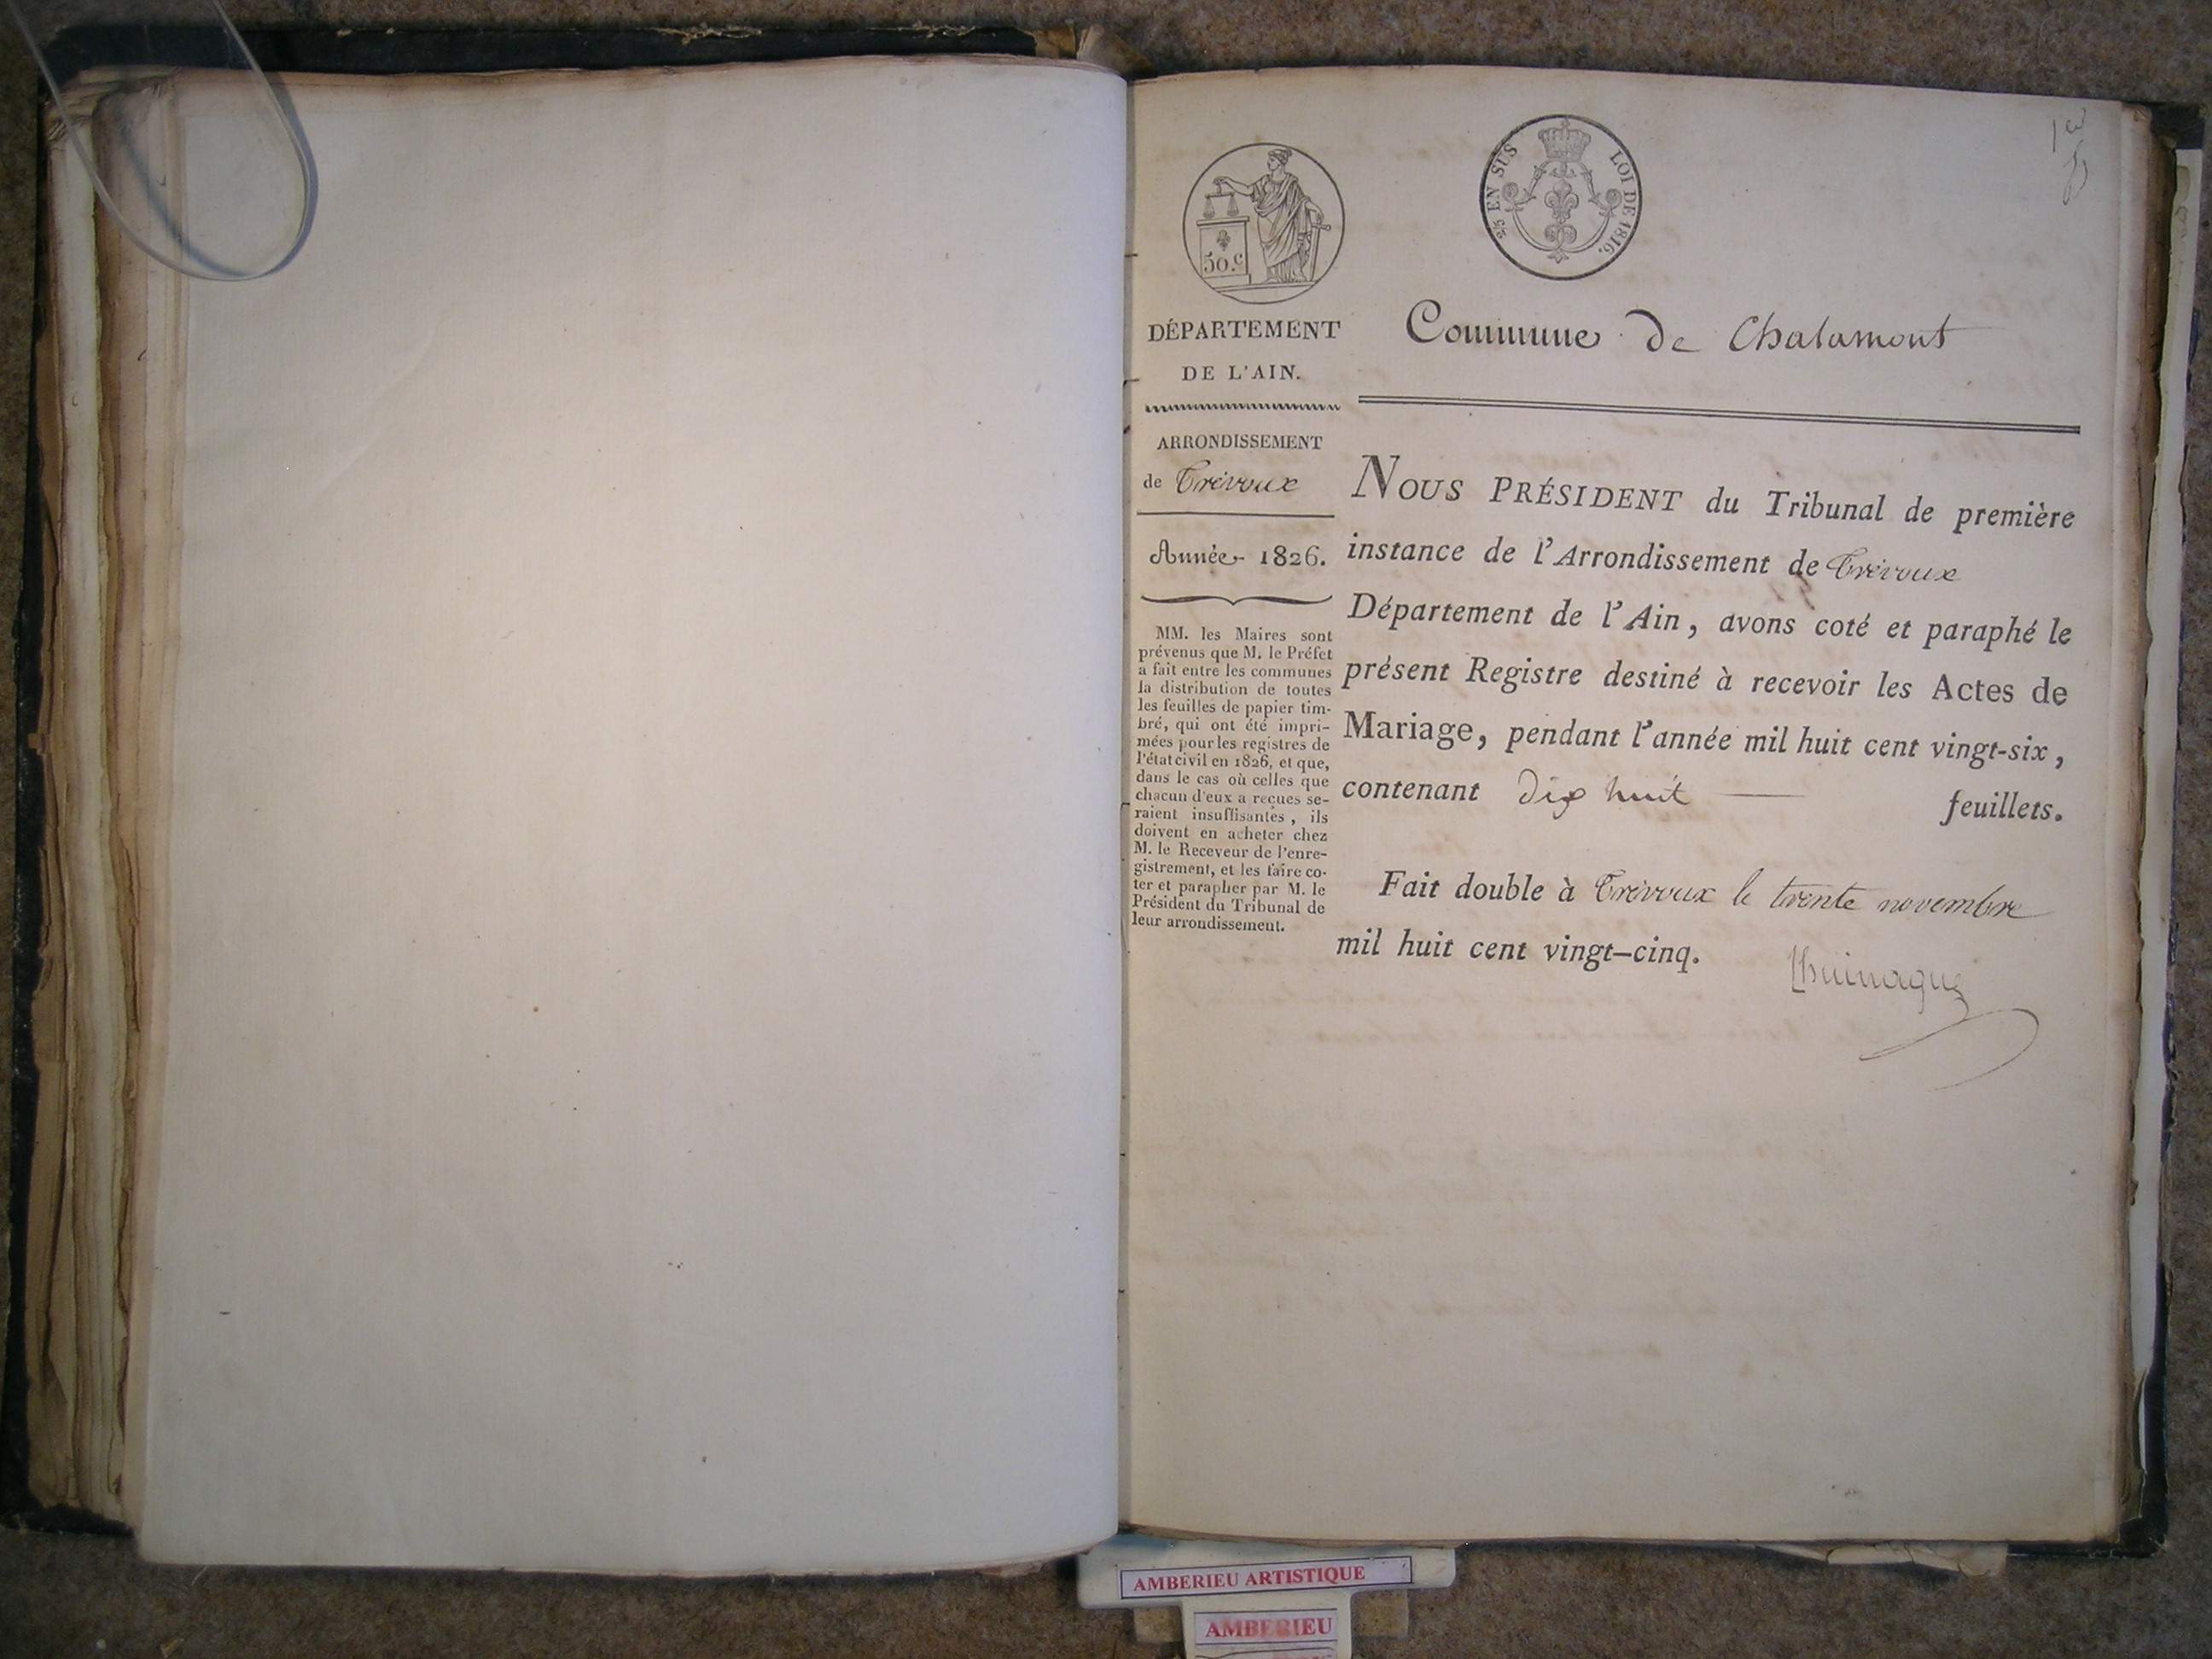 1er
50.c
2/5 EN SUS LOI DE 1816.
DÉPARTEMENT
DE L'AIN.
ARRONDISSEMENT
de Trévoux
Année 1826.
MM. les Maires sont
prévenus que M. le Préfet
a fait entre les communes
la distribution de toutes
les feuilles de papier tim-
bré, qui ont été impri-
mées pour les registres de
l'état civil en 1826, et que,
dans le cas où celles que
chacun d'eux a reçues se-
raient insuffisantes, ils
doivent en acheter chez
M. le Receveur de l'enre-
gistrement, et les faire co-
ter et parapher par M. le
Président du Tribunal de
leur arrondissement.
Commune de Chalamont
NOUS PRÉSIDENT du Tribunal de première
instance de l'Arrondissement de Trévoux
Département de l'Ain, avons coté et paraphé le
présent Registre destiné à recevoir les Actes de
Mariage, pendant l'année mil huit cent vingt-six,
contenant dix huit — feuillets.
Fait double à Trévoux le trente novembre
mil huit cent vingt-cinq.
AMBERIEU ARTISTIQUE
AMBERIEU